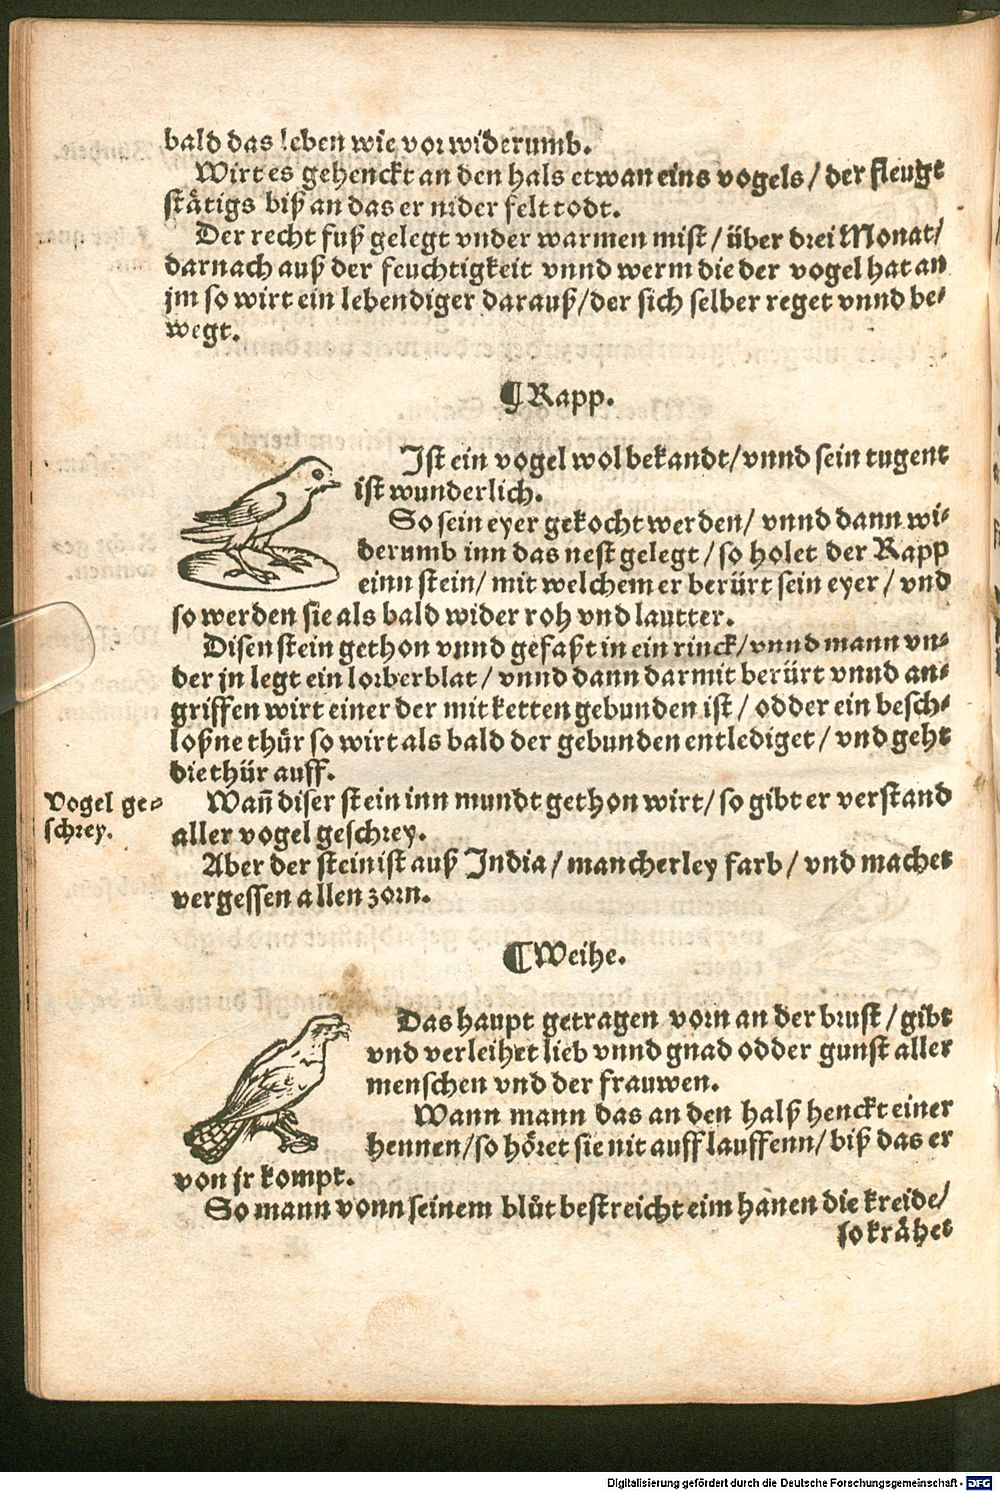 bald das leben wie vor widerumb.
Wirt es gehenckt an den hals etwan eins vogels / der fleugt
stätigs biß an das er nider felt todt.
Der recht fuß gelegt vnder warmen mist / über drei Monat /
darnach auß der feuchtigkeit vnnd werm die der vogel hat an
jm so wirt ein lebendiger darauß / der sich selber reget vnnd be⸗
wegt.
¶ Rapp.
Ist ein vogel wol bekandt / vnnd sein tugent
ist wunderlich.
So sein eyer gekocht werden / vnnd dann wi⸗
derumb inn das nest gelegt / so holet der Rapp
einn stein / mit welchem er berürt sein eyer / vnd
so werden sie als bald wider roh vnd lautter.
Disen stein gethon vnnd gefaßt in ein rinck / vnnd mann vn⸗
der jn legt ein lorberblat / vnnd dann darmit berürt vnnd an⸗
griffen wirt einer der mit ketten gebunden ist / odder ein besch⸗
loßne thür so wirt als bald der gebunden entlediget / vnd geht
die thür auff.
Vogel ge⸗
schrey.
Wañ diser stein inn mundt gethon wirt / so gibt er verstand
aller vogel geschrey.
Aber der stein ist auß India / mancherley farb / vnd machet
vergessen allen zorn.
¶ Weihe.
Das haupt getragen vorn an der brust / gibt
vnd verleihet lieb vnnd gnad odder gunst aller
menschen vnd der frauwen.
Wann mann das an den halß henckt einer
hennen / so höret sie nit auff lauffenn / biß das er
von jr kompt.
So mann vonn seinem blůt bestreicht eim hanen die kreide /
so krähet
Digitalisierung gefördert durch die Deutsche Forschungsgemeinschaft - DFG